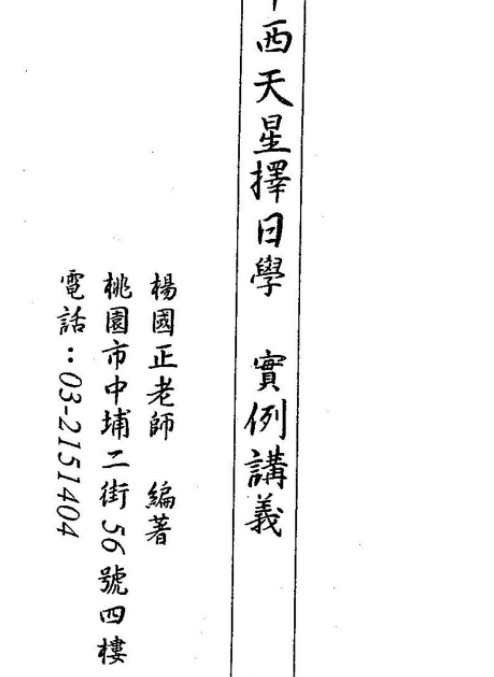 西天星擇日學 實例講義
楊國正老師 編著
桃園市中埔二街56號四樓
電話：03-2151404